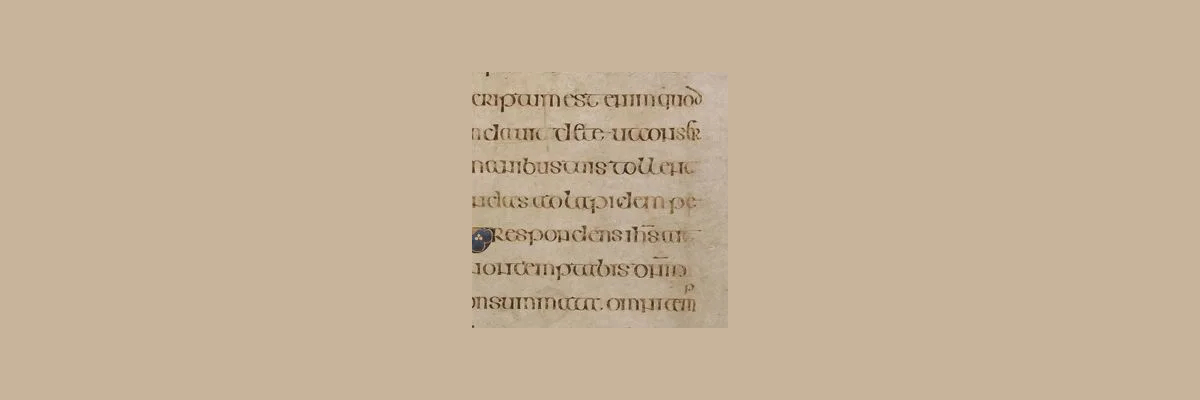 criptum est enim quod
ndauit dete ut cons
manibus tuis tollent
ndas ad lapidem pe
Respondens ihs ait
non temptabis dnm
onsummata omni tem